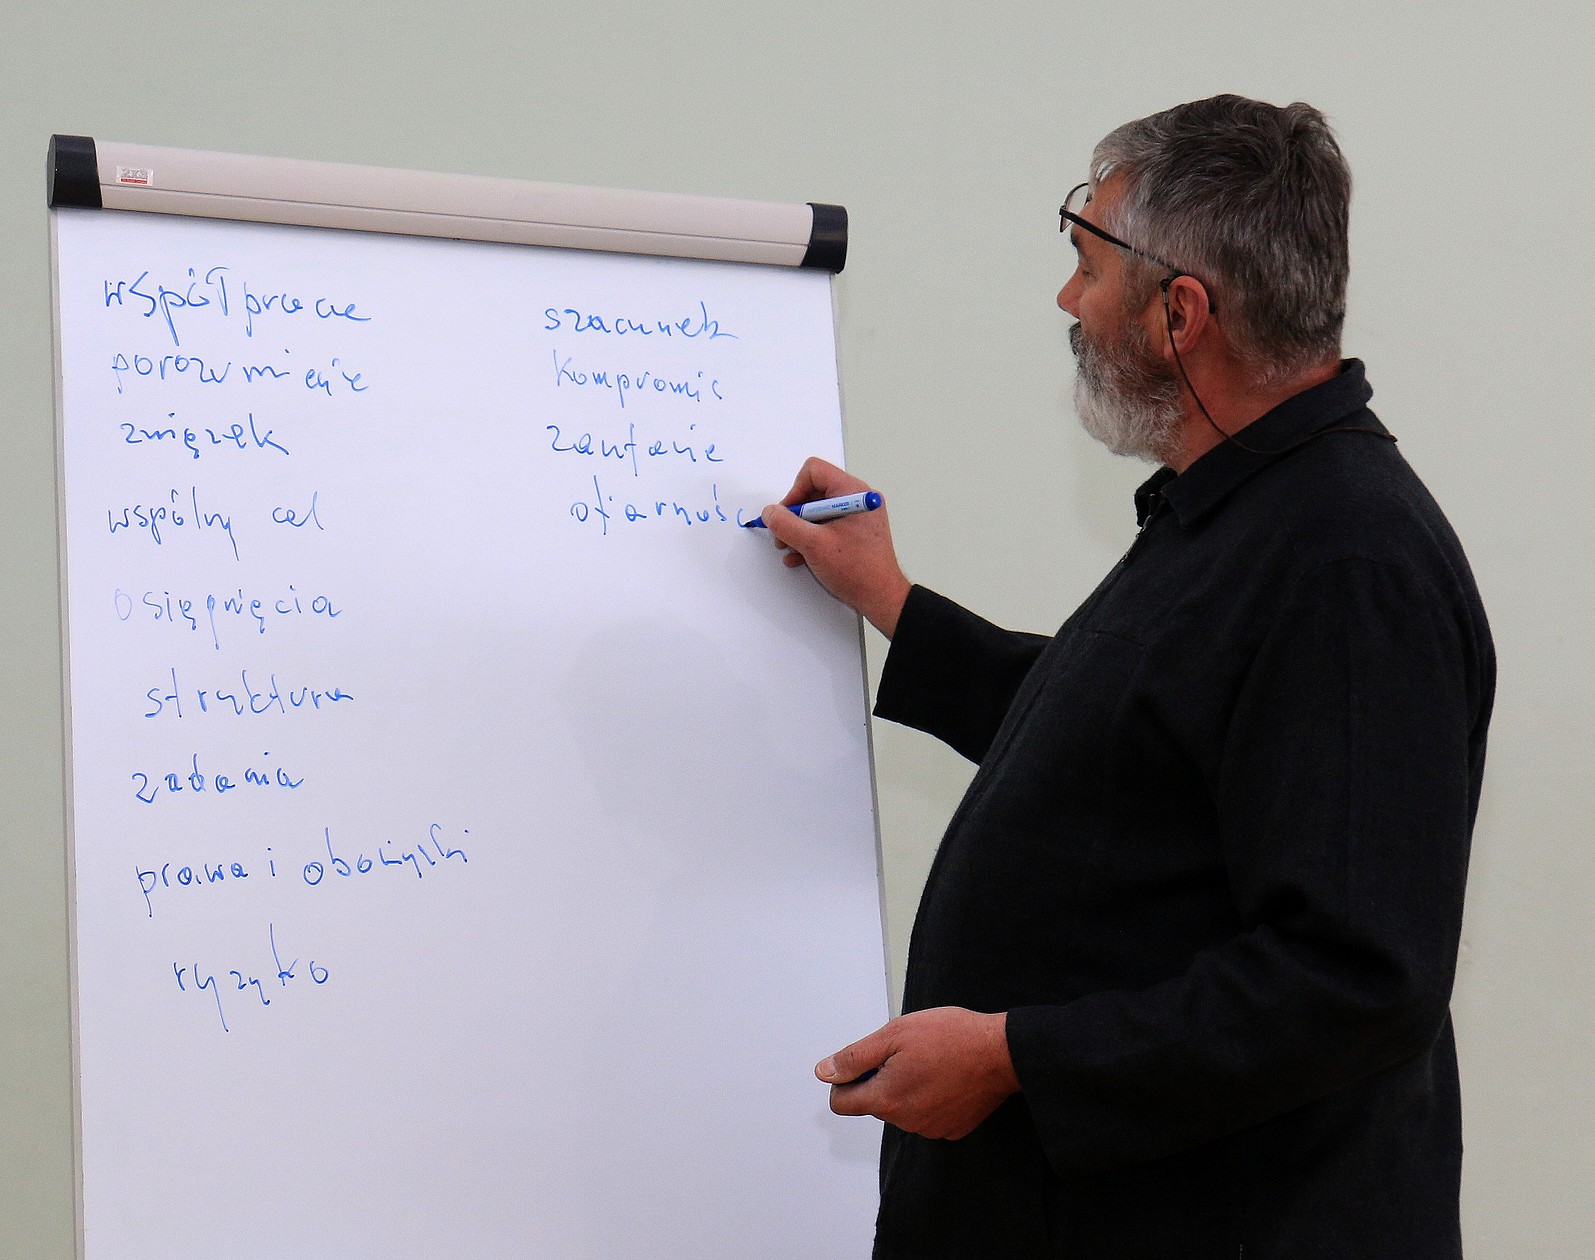 2x3
współpraca
porozumienie
związek
wspólny cel
osiągnięcia
struktura
zadania
prawa i obowiązki
ryzyko
szacunek
kompromis
zaufanie
ofiarność
MARKER